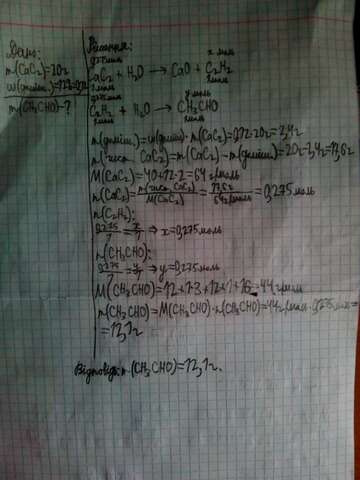 Дано:
m(CaC₂)=20г
w(доміш.)=12%=0,12
m(CH₃CHO)-?
Розв'язання:
0,275моль x моль
CaC₂ + H₂O → CaO + C₂H₂
1моль 1моль
0,275моль y моль
C₂H₂ + H₂O → CH₃CHO
1моль 1моль
m(доміш.)=w(доміш)·m(CaC₂)=0,12·20г=2,4г
m(чист. CaC₂)=m(CaC₂)-m(доміш.)=20г-2,4г=17,6г
M(CaC₂)=40+12·2=64г/моль
n(CaC₂)=m(чист. CaC₂)/M(CaC₂)=17,6г/64г/моль=0,275моль
n(C₂H₂):
0,275/1=x/1 ⇒ x=0,275моль
n(CH₃CHO):
0,275/1=y/1 ⇒ y=0,275моль
M(CH₃CHO)=12+1·3+12+1+16=44г/моль
m(CH₃CHO)=M(CH₃CHO)·n(CH₃CHO)=44г/моль·0,275моль=
=12,1г
Відповідь: m(CH₃CHO)=12,1г.